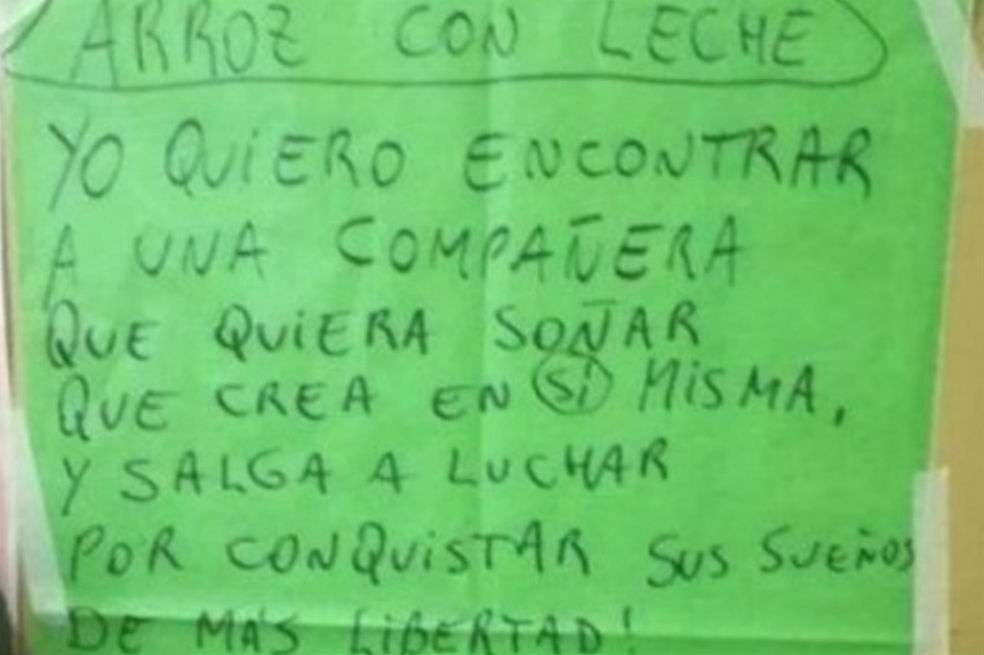 ARROZ CON LECHE
YO QUIERO ENCONTRAR
A UNA COMPAÑERA
QUE QUIERA SOÑAR
QUE CREA EN SÍ MISMA,
Y SALGA A LUCHAR
POR CONQUISTAR SUS SUEÑOS
DE MÁS LIBERTAD!